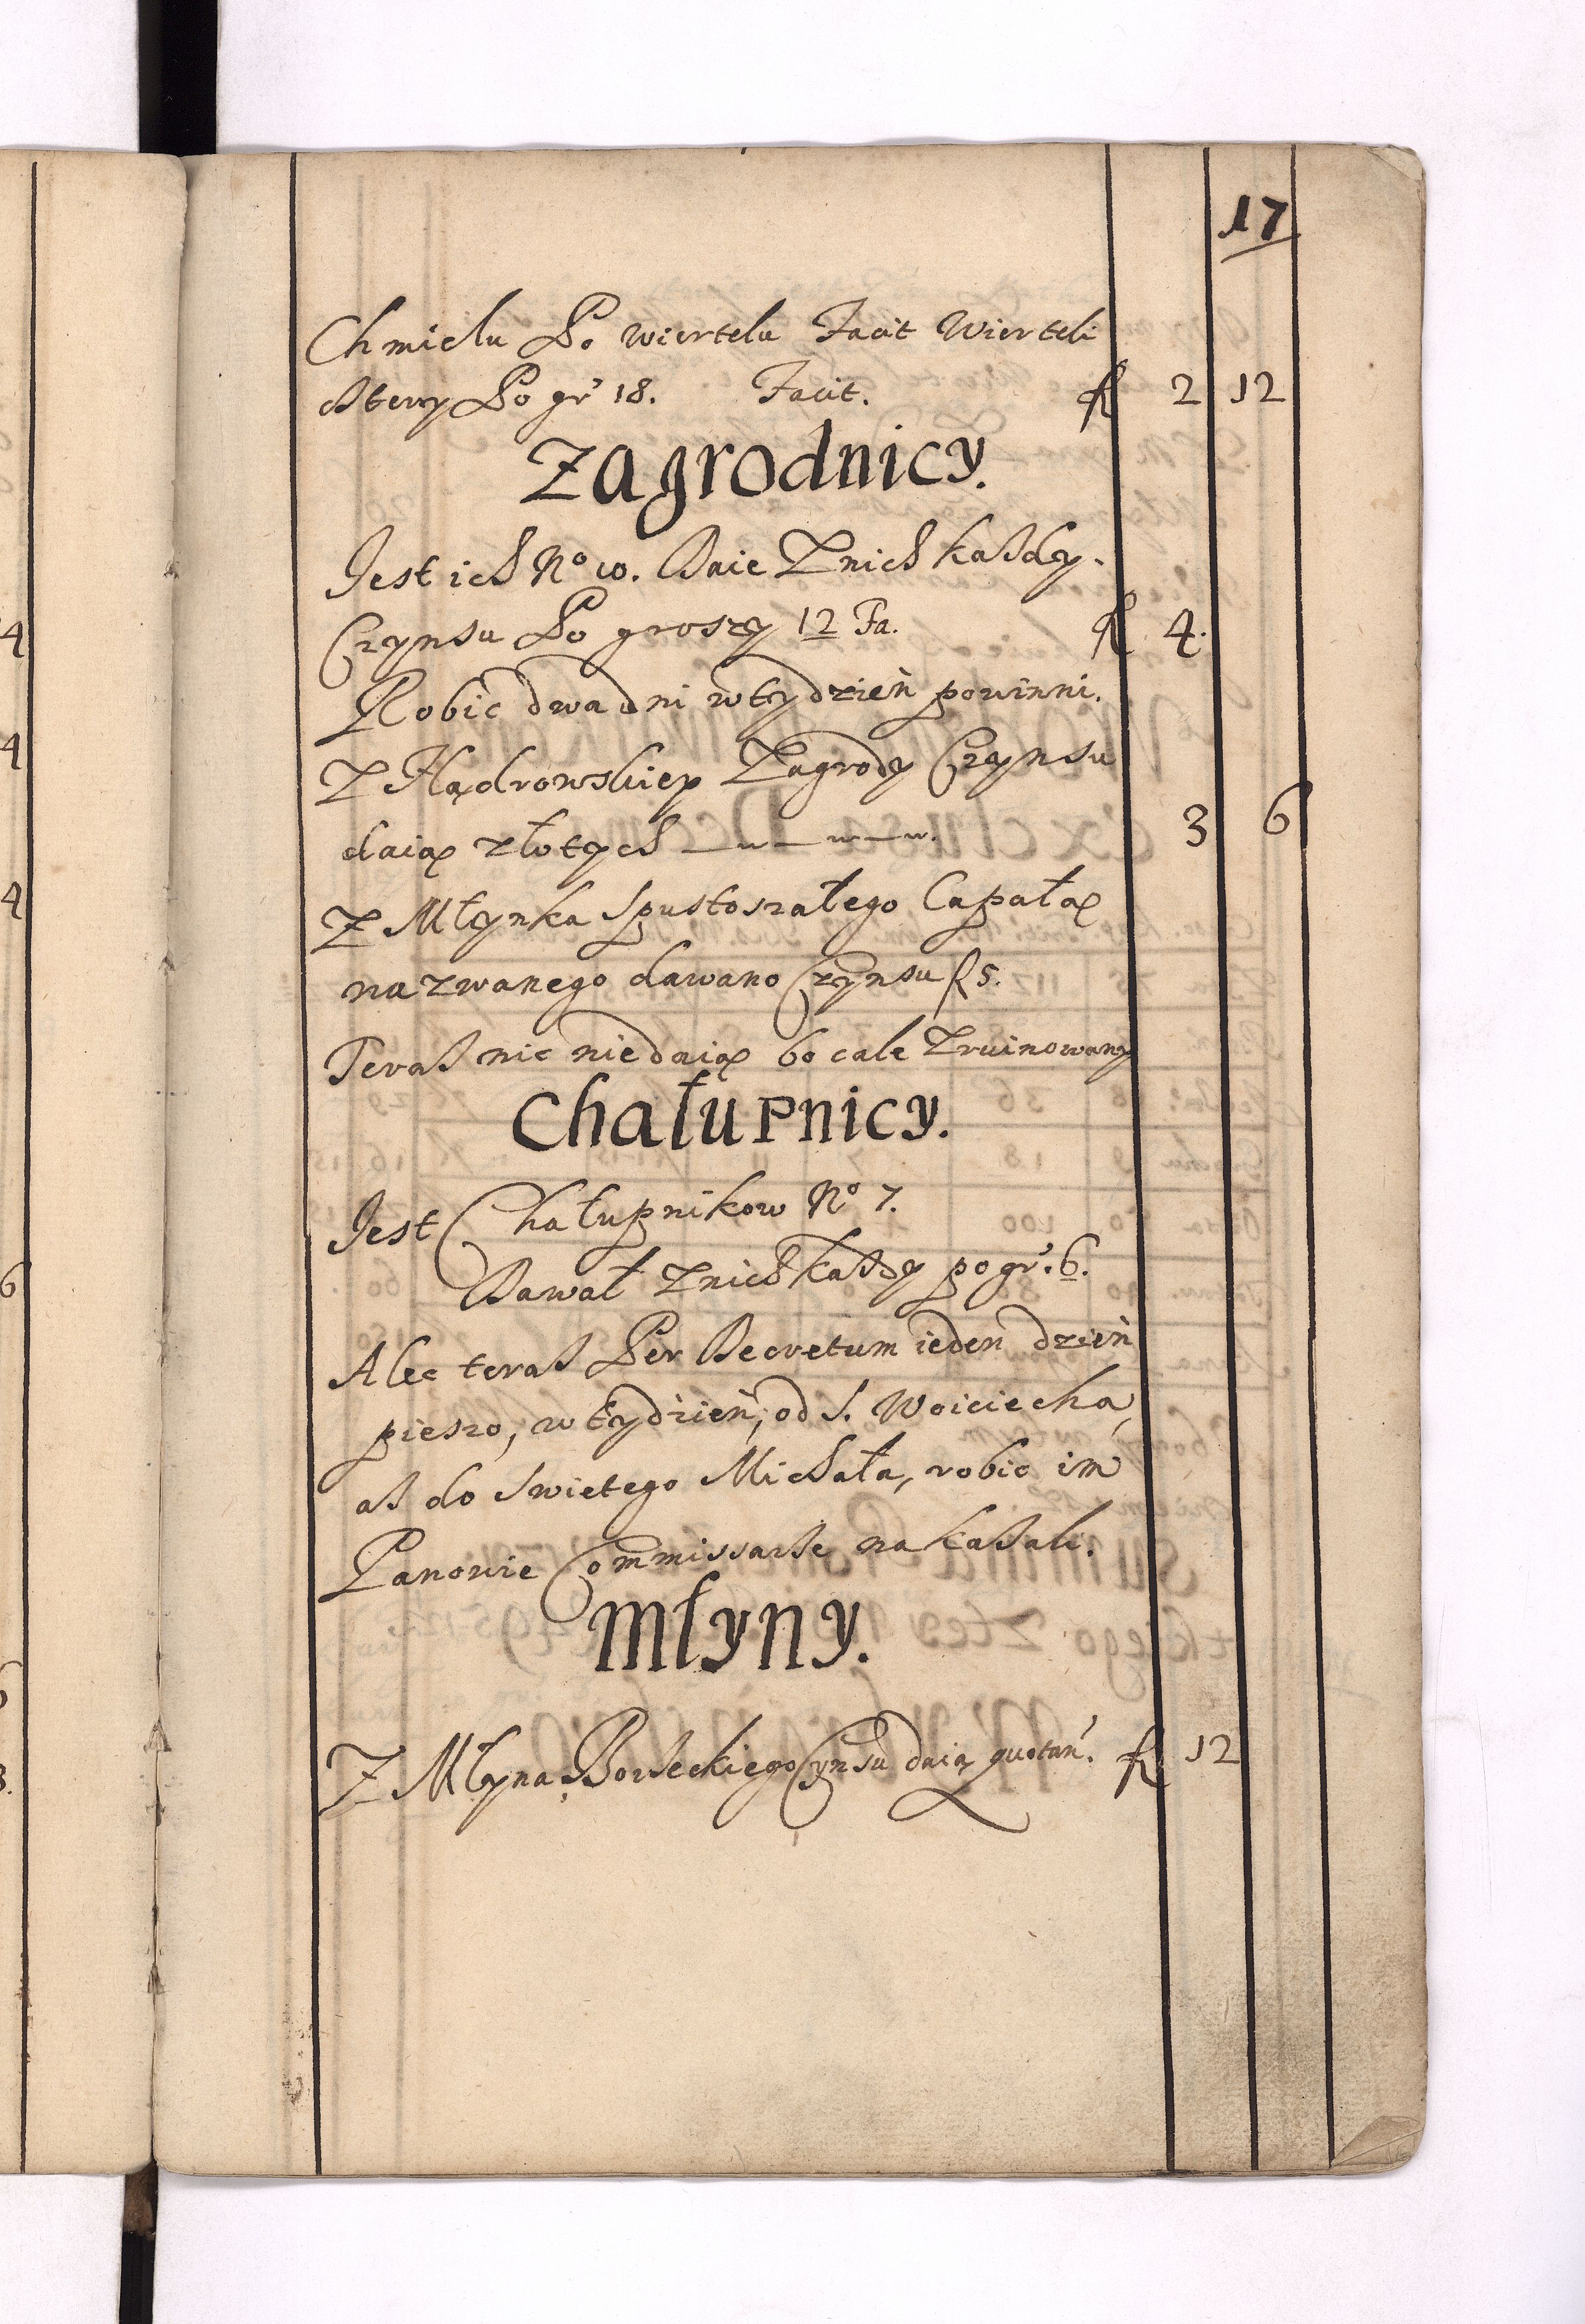 17
Chmielu Po wiertelu Facit Wierteli
cztery Po gr 18. Facit. fl 2 12
Zagrodnicy.
Jest ich No 10. Daie Z nich każdy.
Czynsu Po groszy 12 Fa. fl 4.
Robic dwa dni w tydzień powinni.
Z Zagrody Czynsu
daią złotych 3 6
Z Młynka Spustoszałego Capałą
nazwanego dawano Czynsu fl 5.
Teraz nic niedaią bo cale Zruinowany
Chałupnicy.
Jest Chałupnikow No 7.
Dawał Z nich każdy po gr. 6.
Alec teraz Per Decretum ieden dzień
pieszo, w tydzień, od S. Woiciecha,
aż do Swietego Michała, robic im
Panowie Commissarze nakazali.
Młyny.
Z Młyna Borzeckiego Cynsu daią quotan. fl 12